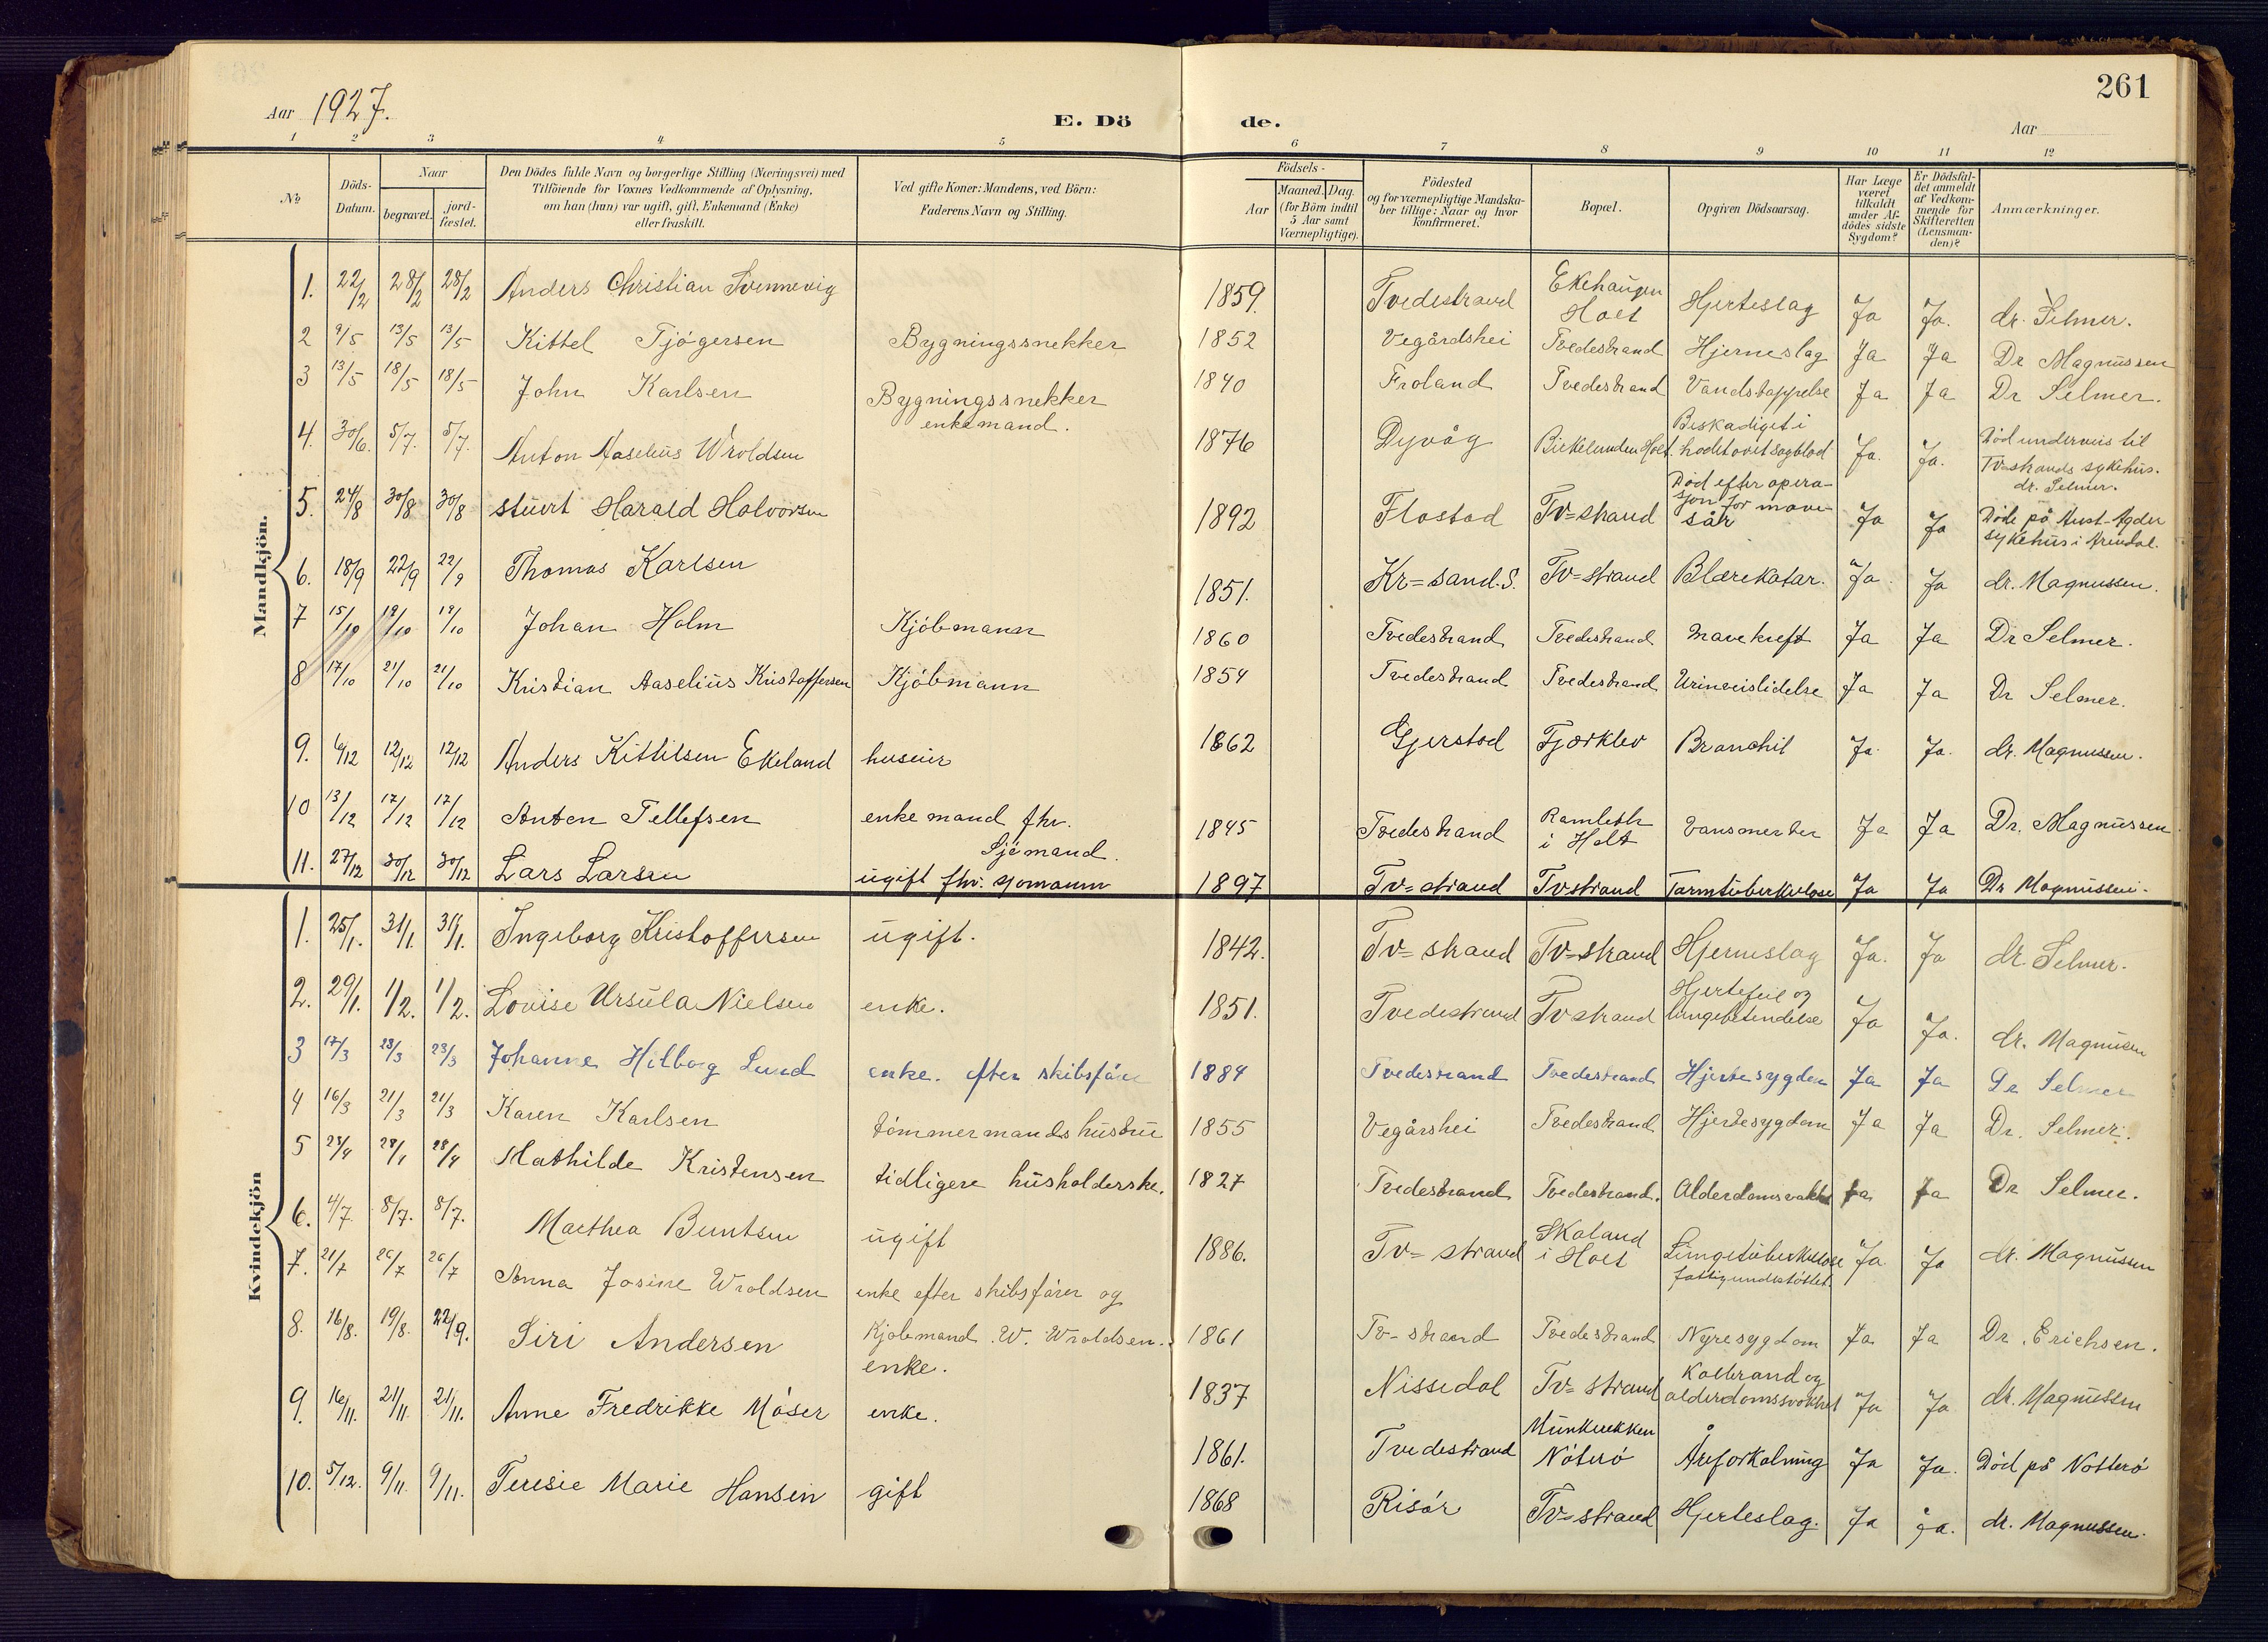 261
Aar 1927.
E. Dö de.
Aar
1 2 3 4 5 6 7 8 9 10 11 12
No
Döds-Datum.
Naar
begravet.
jordfæstet.
Den Dödes fulde Navn og borgerlige Stilling (Næringsvei) med
Tilföiende for Voxnes Vedkommende af Oplysning,
om han (hun) var ugift, gift, Enkemand (Enke)
eller fraskilt.
Ved gifte Koner: Mandens, ved Börn:
Faderens Navn og Stilling.
Födsels-
Aar
Maaned. Dag.
(for Börn indtil
5 Aar samt
Værnepligtige).
Födested
og for værnepligtige Mandska-
ber tillige: Naar og hvor
konfirmeret.
Bopæl.
Opgiven Dödsaarsag.
Har Læge
været
tilkaldt
under Af-
dödes sidste
Sygdom?
Er Dödsfal-
det anmeldt
af Vedkom-
mende for
Skifteretten
(Lensman-
den)?
Anmærkninger.
Mandkjön.
1. 22/2 28/2 28/2 Anders Christian Svennevig 1859. Tvedestrand Ekehaugen Holt Hjerteslag Ja Ja. dr. Selmer.
2 9/5 13/5 13/5 Kittel Tjögersen Bygningssnekker 1852 Vegårdshei Tvedestrand Hjerneslag Ja Ja Dr Magnussen
3 13/5 18/5 18/5 John Karlsen Bygningssnekker enkemand. 1840 Froland Tvedestrand Vandstoppelse Ja Ja Dr Selmer.
4. 30/6. 5/7. 5/7. Anton Aaselius Wroldsen 1876 Dyvåg Birkelunden Holt. Beskadiget i hodet av et sagblad Ja. Ja. Död underveis til Tv=strands sykehus. dr. Selmer.
5. 24/8 30/8 30/8 stuert Harald Halvorsen 1892 Flostad Tv=strand Död efter operasjon for mavesår Ja Ja Döde på Aust-Agder sykehus i Arendal.
6. 18/9 22/9 22/9 Thomas Karlsen 1851. Kr=sand.S. Tv=strand Blærekatar. Ja. Ja dr. Magnussen.
7 15/10 19/10 19/10 Johan Holm Kjöbmann 1860 Tvedestrand Tvedestrand Mavekreft Ja Ja Dr Selmer.
8 17/10 21/10 21/10 Kristian Aaselius Kristoffersen Kjöbmann 1854 Tvedestrand Tvedestrand Urinveislidelse Ja Ja Dr Selmer.
9. 6/12 12/12 12/12 Anders Kittilsen Ekeland huseier 1862 Gjerstad Fjærklev Bronchit Ja. Ja. dr. Magnussen.
10 13/12 17/12 17/12 Anton Tellefsen enkemand fhv. Sjömand. 1845 Tvedestrand i Holt Ja Ja Dr. Magnussen
11. 27/12 30/12 30/12 Lars Larsen ugift fhv. sjömann 1897 Tv=strand Tvstrand Tarmtuberkulose Ja Ja Dr Magnussen.
Kvindekjön
1. 25/1. 31/1. 31/1. Ingeborg Kristoffersen ugift. 1842. Tv=strand Tv=strand Hjerneslag Ja. Ja dr. Selmer.
2. 29/1. 1/2. 1/2. Lovise Ursula Nielsen enke. 1851. Tvedestrand Tvstrand Hjertefeil og lungebetendelse Ja Ja. dr. Magnusen
3 17/3 23/3 23/3 Johanne Hilborg Lund enke. efter skibsförer 1884 Tvedestrand Tvedestrand Hjertesygdom Ja Ja Dr Selmer
4 16/3 21/3 21/3 Karen Karlsen tömmermands hustru 1855 Vegårshei Tvedestrand Hjertesygdom Ja Ja Dr. Selmer.
5 23/4 28/4 28/4 Mathilde Kristensen tidligere husholderske. 1827 Tvedestrand Tvedestrand. Alderdomsvakhet Ja Ja Dr Selmer.
6. 4/7. 8/7. 8/7. Marthea Berntsen ugift 1886. Tv=strand Skaland i Holt Lungetuberkulose fattigunderstöttet. Ja Ja dr. Magnusen
7. 21/7 26/7 26/7 Anna Josine Wroldsen enke efter skibsförer og Kjöbmand W. Wroldsen. 1861 Tv-strand Tvedestrand Nyresygdom Ja Ja Dr. Erichsen.
8. 16/8. 19/8. 22/9. Siri Andersen enke. 1837 Nissedal Tv=strand Kolbrand og alderdomssvakhet Ja Ja dr. Magnussen
9. 16/11. 21/11. 21/11. Anne Fredrikke Möser enke. 1861. Tvedestrand Munkerekken Nöterö Åreforkalning Ja Ja. Död på Nötterö
10. 5/12. 9/11. 9/11. Teresie Marie Hansen gift 1868 Risör Tv=strand Hjerteslag. Ja Ja. dr. Magnussen.